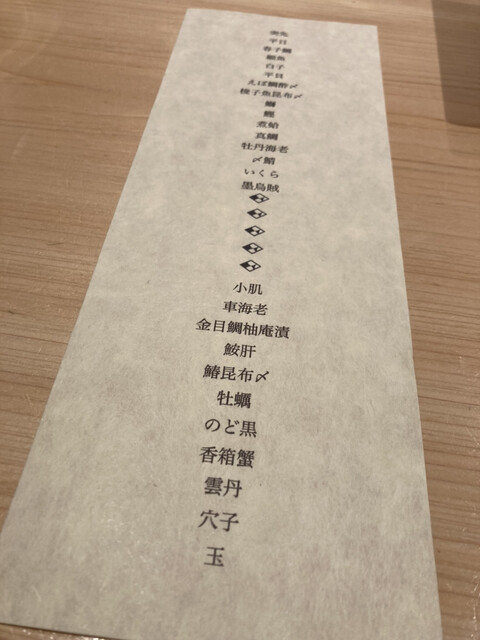 平目
春子鯛
白子
平貝
えぼ鯛酢〆
梭子魚昆布〆
鰤
鰹
煮蛤
真鯛
牡丹海老
〆鯖
いくら
墨烏賊
小肌
車海老
金目鯛柚庵漬
鮟肝
鰆昆布〆
牡蠣
のど黒
香箱蟹
雲丹
穴子
玉